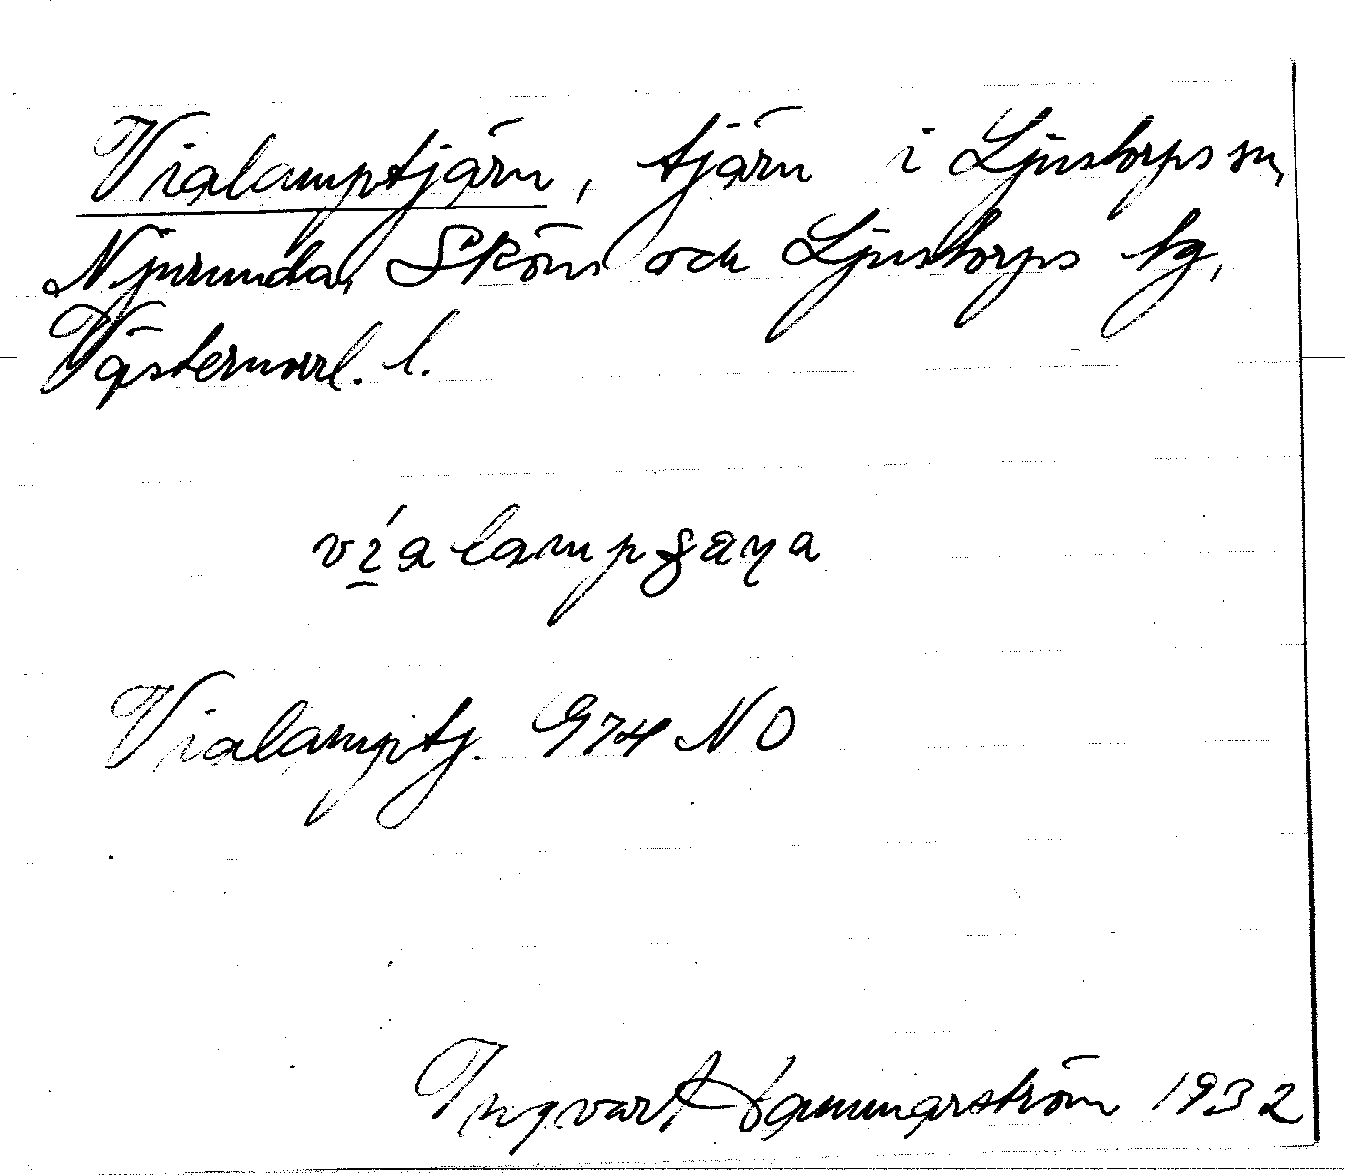 Vialamptjärn, tjärn i Ljustorps sn,
Njurunda, Sköns och Ljustorps tg,
Västernorrl. l.
Vialamptj. 974 NO
Ingvar Hammarström 1932